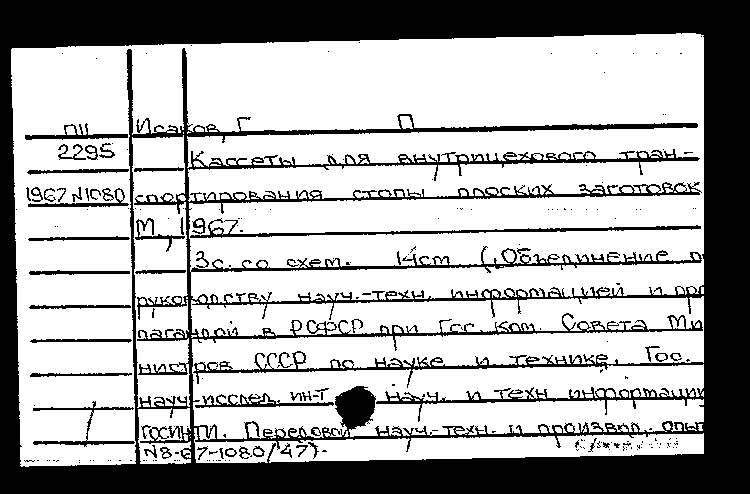 ПII Исаков, Г П
2295 Кассеты для внутрицехового тран-
1967 N1080 спортирования стопы плоских заготовок
М., 1967.
3с. со схем. 14см (Объединение п
руководству науч.-техн. информацией и про
пагандой в РСФСР при Гос. ком. Совета Ми
нистров СССР по науке и технике. Гос.
науч-исслед. ин-т науч. и техн информации
ГОСИНТИ. Передовой науч.-техн. и производ. опыт
N8-67-1080/47).